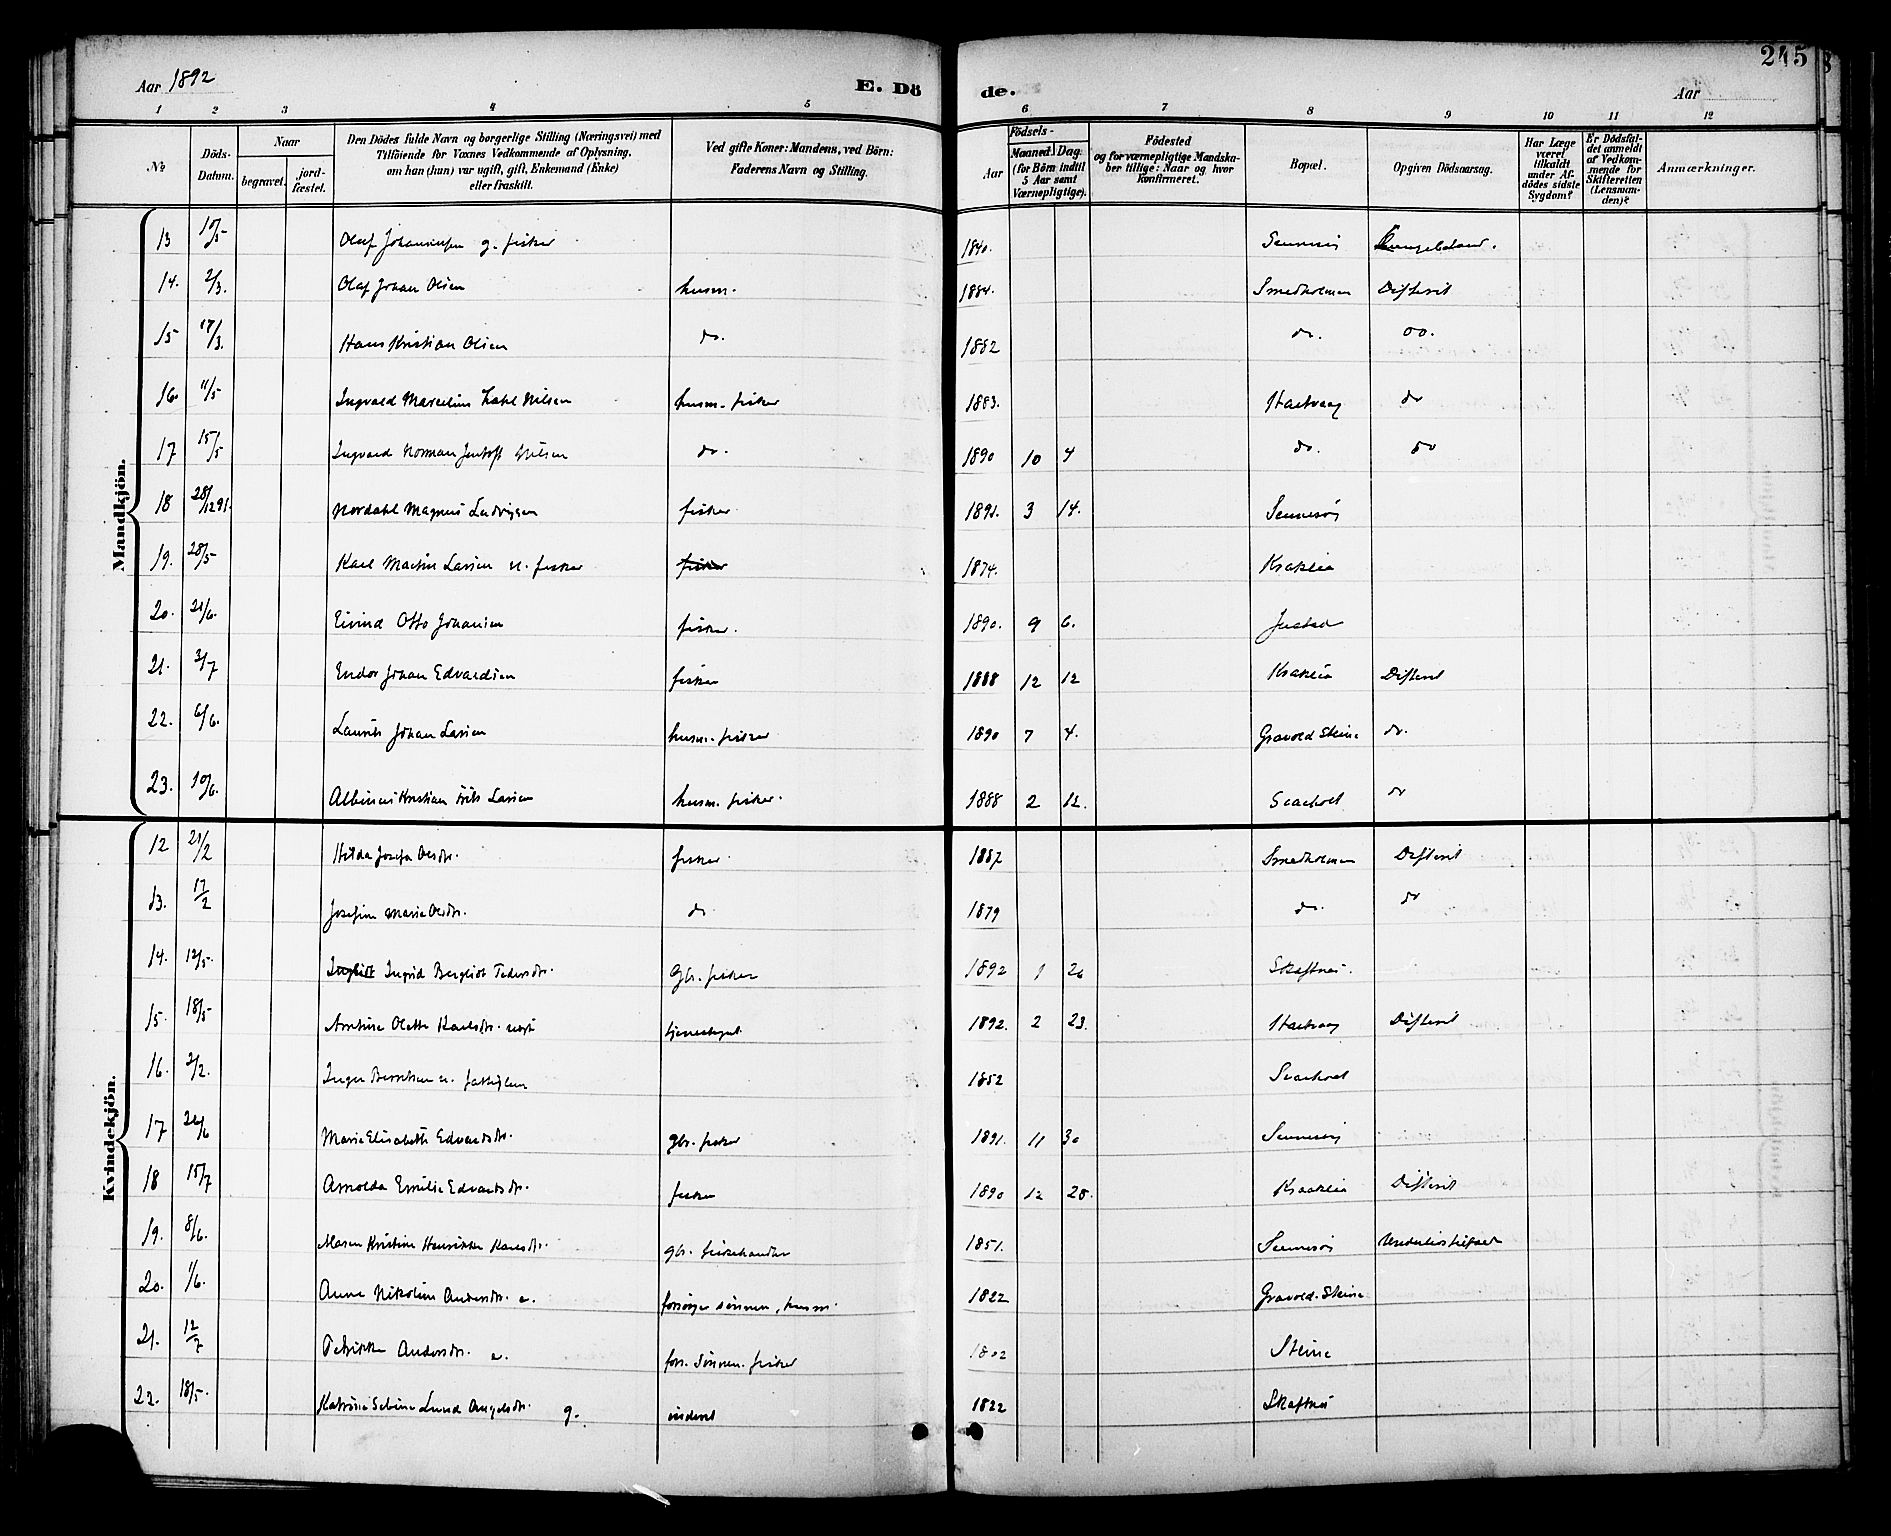 245
Aar 1892
E. Dö
de.
Aar
1 2 3 4 5 6 7 8 9 10 11 12
No.
Döds-
Datum.
Naar
begravet.
jord-
fæstet.
Den Dödes fulde Navn og borgerlige Stilling (Næringsvei) med
Tilföiende for Voxnes Vedkommende af Oplysning,
om han (hun) var ugift, gift, Enkemand (Enke)
eller fraskilt.
Ved gifte Koner: Mandens, ved Börn:
Faderens Navn og Stilling.
Födsels-
Aar
Maaned.
Dag.
(for Börn indtil
5 Aar samt
Værnepligtige).
Födested
og for værnepligtige Mandska-
ber tillige: Naar og hvor
konfirmeret.
Bopæl.
Opgiven Dödsaarsag.
Har Læge
været
tilkaldt
under Af-
dödes sidste
Sygdom?
Er Dödsfal-
det anmeldt
af Vedkom-
mende for
Skifteretten
(Lensman-
den)?
Anmærkninger.
Mandkjön.
13 Olaf Johannesen g. fisker 1840. Sennesvij
14. 2/3. Olaf Johan Olsen husm. 1884. Smedholmen Difterit
15 17/3. Hans Kristian Olsen do. 1882 do. do.
16. 11/5 Ingvald Marcelius Nilsen husm. fisker 1883. Haetvaag do
17 15/5 Ingvard Norman Jentoft Nilsen do. 1890 10 4 do. do
18 28/12 91. Nordahl Magnus Ludvigsen fisker 1891. 3 14. Sennesvij
19. 28/5 Karl Martin Larsen u. fisker fisker 1874. Krakleia
20. 21/6. Eivind Otto Johansen fisker. 1890. 9 6. Justad
21. 3/7 Endor Johan Edvardsen fisker 1888 12 12 Krakleia Difterit
22. 6/6. Laurits Johan Larsen husm. fisker 1890 7 4. Gravold Steine do.
23. 10/6. Albinus Kristian Frits Larsen husm. fisker. 1888 2 12. do
Kvindekjön.
12 21/2 Hilda Josefa Olsdtr. fisker 1887 Smedholmen Difterit
13. 17/2 Josefine Marie Olsdtr. do 1879 do. do
14. 12/5. Ingrid Bergliot Pedersdtr. Gbr. fisker 1892 1 26 Skaftnes.
15. 18/5 Arntine Olette Karlsdtr. tjenestegut 1892. 2 23. Haetvaag Difterit
16. 2/2. Inger Berntsen u. fattiglem 1852
17 26/6 Marie Elisabeth Edvardsdtr. gbr. fisker 1891. 11 30 Sennesvij
18 15/7 Arnolda Emilie Edvardsdtr. fisker 1890 12 28. Kraakleia Difterit
19. 8/6. Maren Kristine Henrikke Karlsdtr. gbr. fiskehandler 1851. Sennesvij
20. 1/6. Anne Nikoline Andersdtr. e. forsörges sönnen, husm. 1822 Gravold. Steine
21. 12/7 Petrikke Andersdtr. e. fors. Sönnen. fisker 1802 Steine
22. 18/5. Katrine Sebine Lund Angelsdtr. g. inderst 1822 Skaftnes